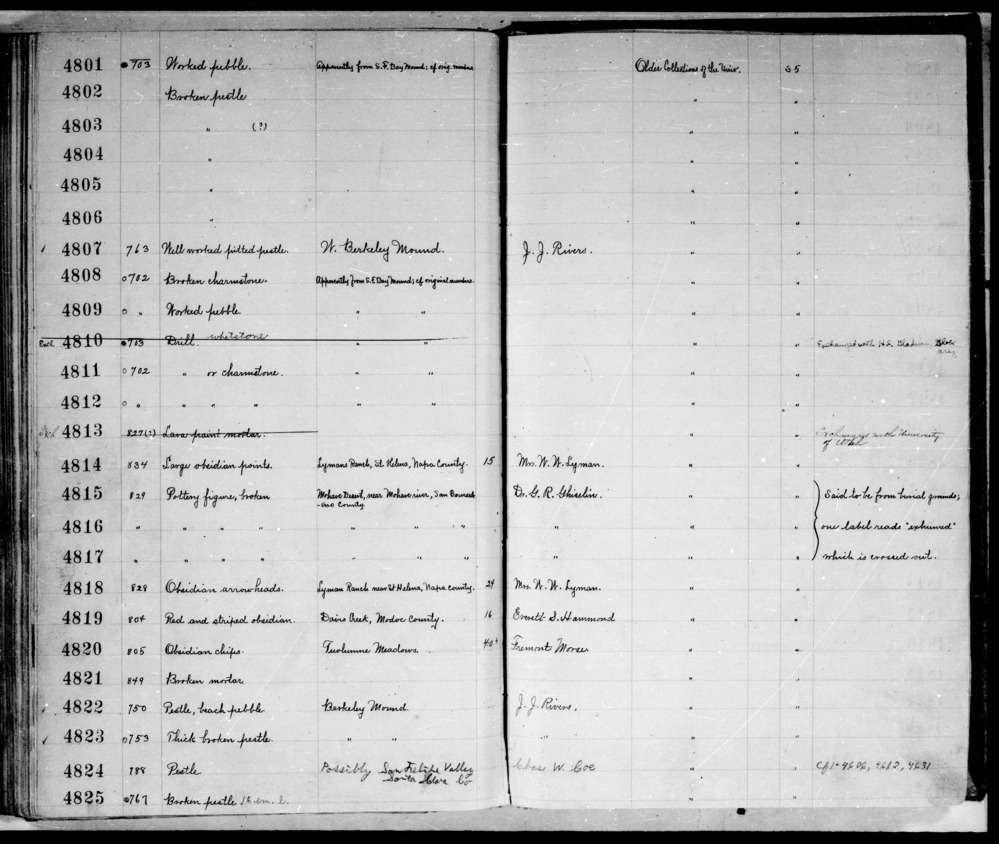 4801 703 Worked pebble. Apparently from S.F. Bay Mound; cf orig. number Older Collections of the Univ. 65
4802 Broken pestle " "
4803 " (?) " "
4804 " " "
4805 " " "
4806 " " "
4807 763 Well worked pitted pestle. W. Berkeley Mound. J. J. Rivers. " "
4808 0702 Broken charmstone. Apparently from S.F. Bay Mound; cf original number. " "
4809 0 " Worked pebble. " " " "
Exch 4810 703 Drill. whetstone " " " " Exchanged with H.S. Gladwin, Globe
Ariz
4811 0702 " or charmstone. " " " "
4812 0 " " " " " " " "
Exch 4813 827(?) Lava paint mortar. " " Exchange with University
of Utah
4814 834 Large obsidian points. Lymans Ranch, St. Helena, Napa County. 15 Mrs. W. W. Lyman. " "
4815 829 Pottery figure, broken Mohave Desert, near Mohave river, San Bernard-
-ino County Dr. G. R. Ghiselin. " " Said to be from burial grounds;
4816 " " " " " " " " " " one label reads "exhumed"
4817 " " " " " " " " " " which is crossed out.
4818 828 Obsidian arrowheads. Lyman Ranch near St Helena, Napa County. 24 Mrs. W. W. Lyman. " "
4819 804 Red and striped obsidian. Davis Creek, Modoc County. 16 Everett S. Hammond " "
4820 805 Obsidian chips. Tuolumne Meadows. 40+ Fremont Morse. " "
4821 849 Broken mortar " "
4822 750 Pestle, beach pebble Berkeley Mound J. J. Rivers. " "
4823 0753 Thick broken pestle. " " " " "
4824 788 Pestle Possibly San Felipe Valley
Santa Clara Co Chas W. Coe " " Cf 1-4606, 4612, 4631
4825 767 Broken pestle 16 cm. l. " "